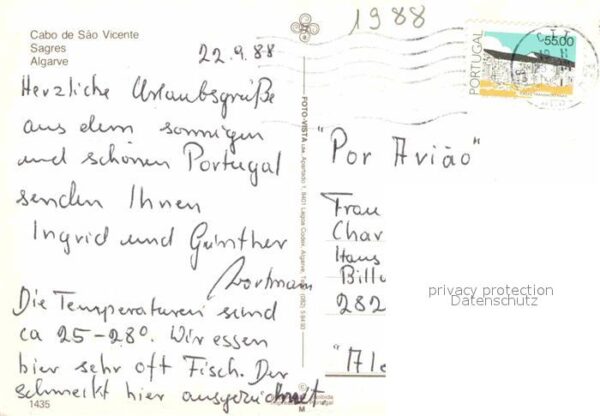 Cabo de São Vicente
Sagres
Algarve
22.9.88
Herzliche Urlaubsgrüße
aus dem sonnigen
und schönen Portugal
senden Ihnen
Ingrid und Günther
Wortmann
Die Temperaturen sind
ca 25-28°. Wir essen
hier sehr oft Fisch. Der
schmeckt hier ausgezeichnet.
1435
FOTO-VISTA
1988
PORTUGAL
55.00
"Por Avião"
Frau
Char
Haus
Billu
282
"Ale
privacy protection
Datenschutz